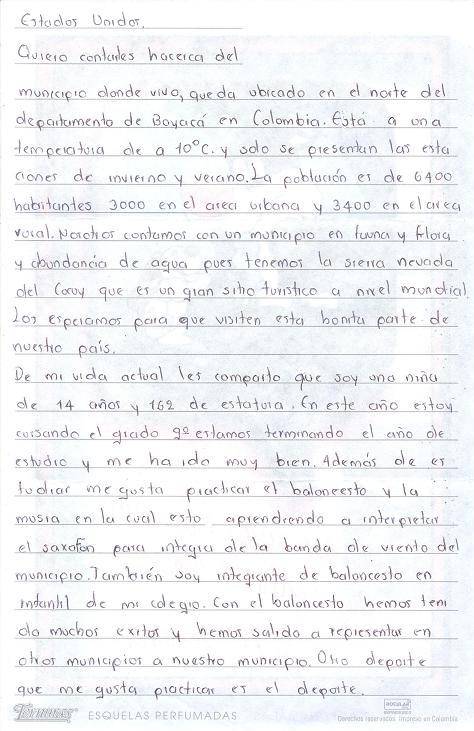 Estados Unidos.
Quiero contarles hacerca del
municipio donde vivo, queda ubicado en el norte del
departamento de Boyacá en Colombia. Está a una
temperatura de a 10°C. y solo se presentan las esta
ciones de invierno y verano. La población es de 6400
habitantes 3000 en el area urbana y 3400 en el area
rural. Nosotros contamos con un municipio en fauna y flora
y abundancia de agua pues tenemos la sierra nevada
del Cocuy que es un gran sitio turistico a nivel mundial
Los esperamos para que visiten esta bonita parte de
nuestro país.
De mi vida actual les comparto que soy una niña
de 14 años y 162 de estatura. En este año estoy
cursando el grado 9º estamos terminando el año de
estudio y me ha ido muy bien. Además de es
tudiar me gusta practicar el baloncesto y la
musia en la cual esto aprendrendo a interpretar
el saxofón para integra de la banda de viento del
municipio. También soy integrante de baloncesto en
infantil de mi colegio. Con el baloncesto hemos teni
do muchos exitos y hemos salido a representar en
otros municipios a nuestro municipio. Otro deporte
que me gusta practicar es el deporte.
ESQUELAS PERFUMADAS
Derechos reservados impreso en Colombia